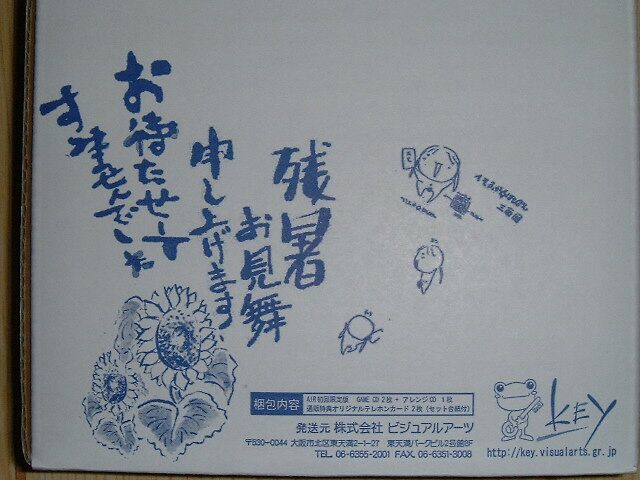 残暑
お見舞
申し上げます、
お待たせして
すみませんでした
梱包内容
AIR初回限定版 GAME CD 2枚 + アレンジCD 1枚
通販特典オリジナルテレホンカード 2枚(セット台紙付)
発送元 株式会社 ビジュアルアーツ
〒530-0044 大阪市北区東天満2-1-27 東天満パークビル2号館8F
TEL. 06-6355-2001 FAX. 06-6351-3008
KEY
http://key.visualarts.gr.jp